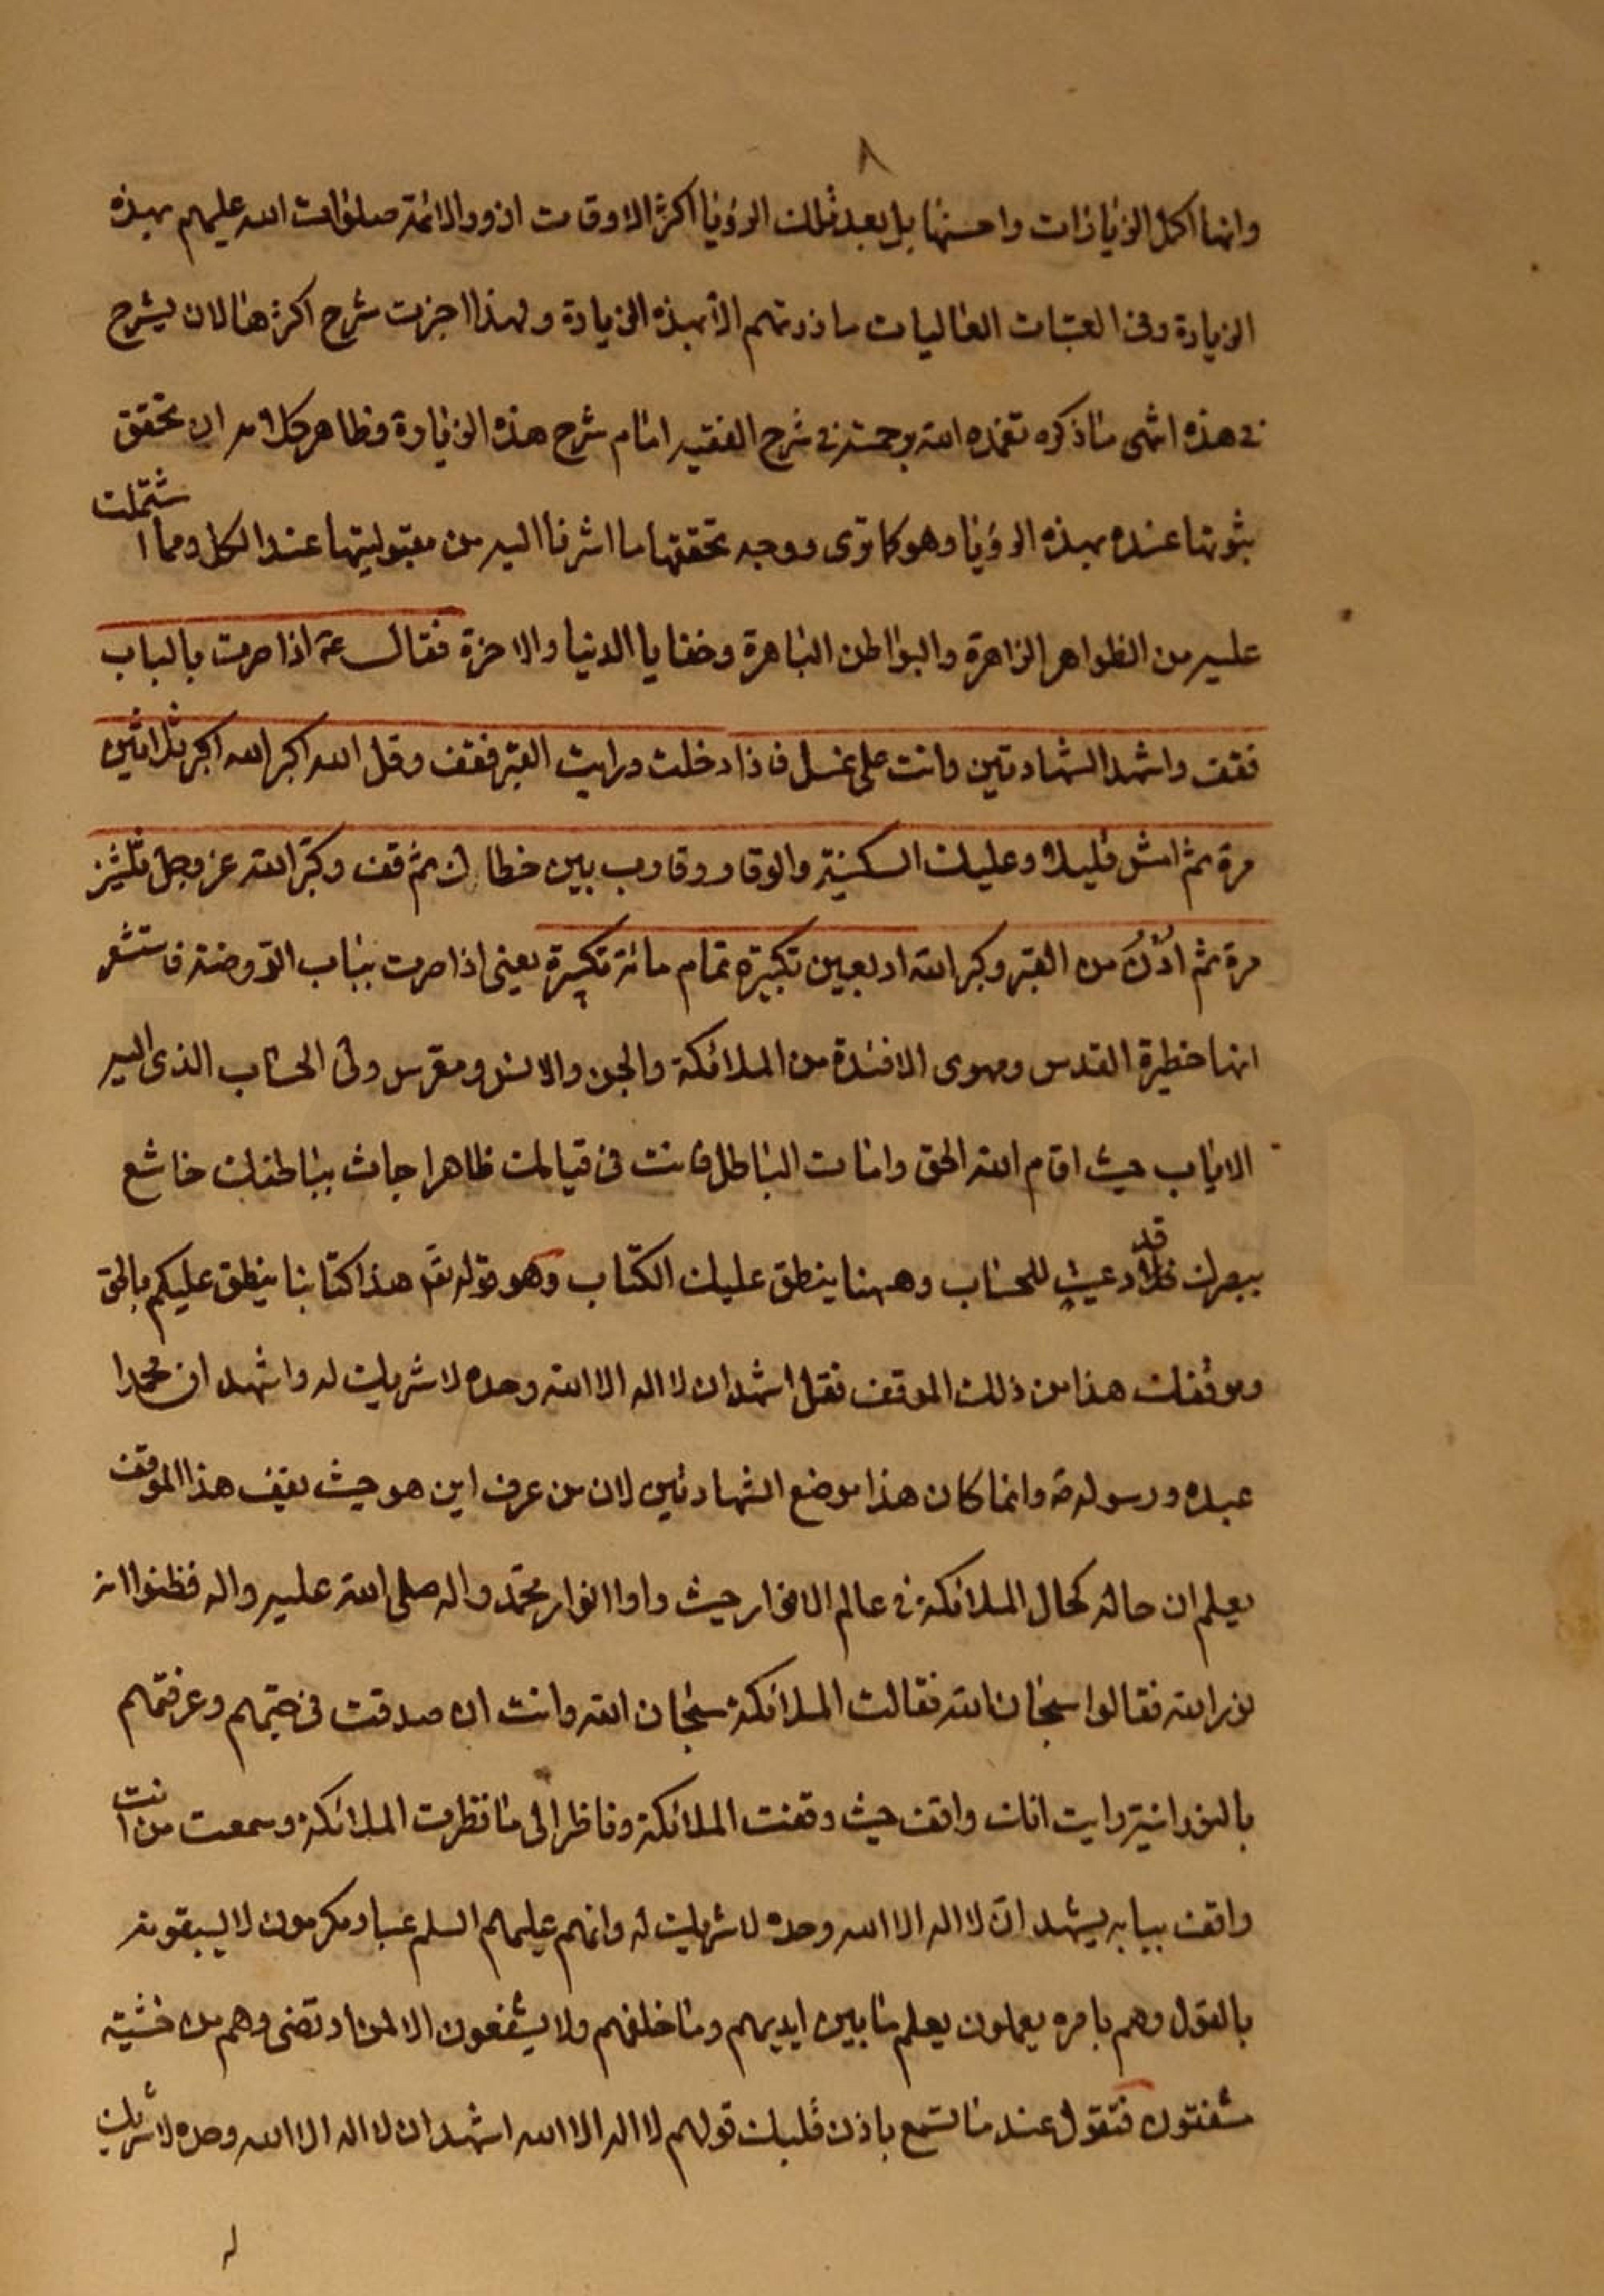 ٨
وانها اكمل الزيارات واحسنها بل بعد تلك الرؤيا اكثر الاوقات ازور الائمة صلوات الله عليهم بهذه
الزيارة وفى العتبات العاليات ما زرتهم الا بهذه الزيارة ولهذا اخرت شرح اكثرها لان يشرح
فى هذه انتهى ما ذكره تغمده الله برحمته فى شرح الفقيه امام شرح هذه الزيارة فظاهر كلامه ان تحقق
ثبوتها عنده بهذه الرؤيا وهو كما ترى ووجه تحققها ما اشرنا اليه من مقبوليتها عند الكل ومما اشتملت
عليه من الظواهر الزاهرة والبواطن الباهرة وخفايا الدنيا والاخرة فقال ع اذا صرت بالباب
فقف واشهد الشهادتين وانت على غسل فاذا دخلت ورايت القبر فقف وقل الله اكبر الله اكبر ثلاثين
مرة ثم امش قليلا وعليك السكينة والوقار وقارب بين خطاك ثم قف وكبّر الله عز وجل ثلثين
مرة ثم ادْنُ من القبر وكبر الله اربعين تكبيرة تمام مائة تكبيرة يعنى اذا صرت بباب الروضة فاستشعر
انها حظيرة القدس ومهوى الافئدة من الملائكة والجن والانس ومقر من ولى الحساب الذى اليه
الاياب حيث اقام الله الحق وامات الباطل فانت فى قيامك ظاهرا جاث بباطنك خاشع
ببصرك قد دعيت للحساب وههنا ينطق عليك الكتاب وهو قوله تع هذا كتابنا ينطق عليكم بالحق
وموقفك هذا من ذلك الموقف فقل اشهد ان لا اله الا الله وحده لا شريك له واشهد ان محمدا
عبده ورسوله ص وانما كان هذا موضع الشهادتين لان من عرف اين هو حيث يقف هذا الموقف
يعلم ان حاله كحال الملائكة فى عالم الانوار حيث راوا انوار محمّد واله صلى الله عليه واله فظنوا انه
نور الله فقالوا سبحان الله فقالت الملائكة سبحان الله وانت ان صدقت فى حبّهم وعرفتهم
بالنورانية رايت انك واقف حيث وقفت الملائكة وناظر الى ما نظرت الملائكة وسمعت من انت
واقف ببابه يشهد ان لا اله الا الله وحده لا شريك له وانهم عليهم السلم عباد مكرمون لا يسبقونه
بالقول وهم بامره يعملون يعلم ما بين ايديهم وما خلفهم ولا يشفعون الا لمن ارتضى وهم من خشيته
مشفقون فتقول عند ما تسمع باذن قلبك قولهم لا اله الا الله اشهد ان لا اله الا الله وحده لا شريك
له